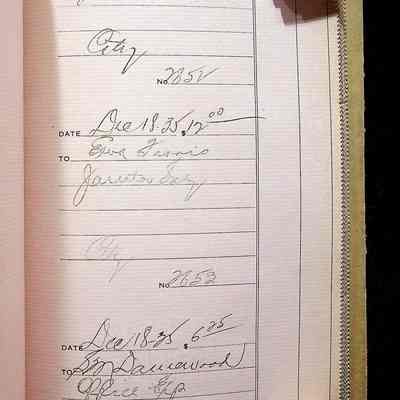 City
No 2852
DATE Dec 18-25, $ 12 00
TO Eva Ferris
Janitor Sal
City
No 2853
DATE Dec 18-25 $ 6 25
TO Danewood
Office Exp